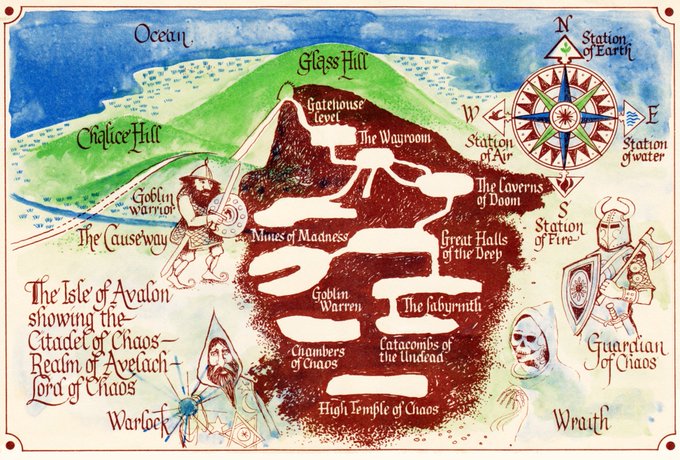 Ocean.
Glass Hill
Chalice Hill
N
Station
of Earth
W
E
Station
of Air
Station
of water
S
Station
of Fire
Gatehouse
level
The Wayroom
The Caverns
of Doom
Goblin
warrior
The Causeway
Mines of Madness
Great Halls
of the Deep
The Isle of Avalon
showing the—
Citadel of Chaos—
Realm of Avelach—
Lord of Chaos
Goblin
Warren
The Labyrinth
Chambers
of Chaos
Catacombs of
the Undead
High Temple of Chaos
Guardian
of Chaos
Warlock
Wraith